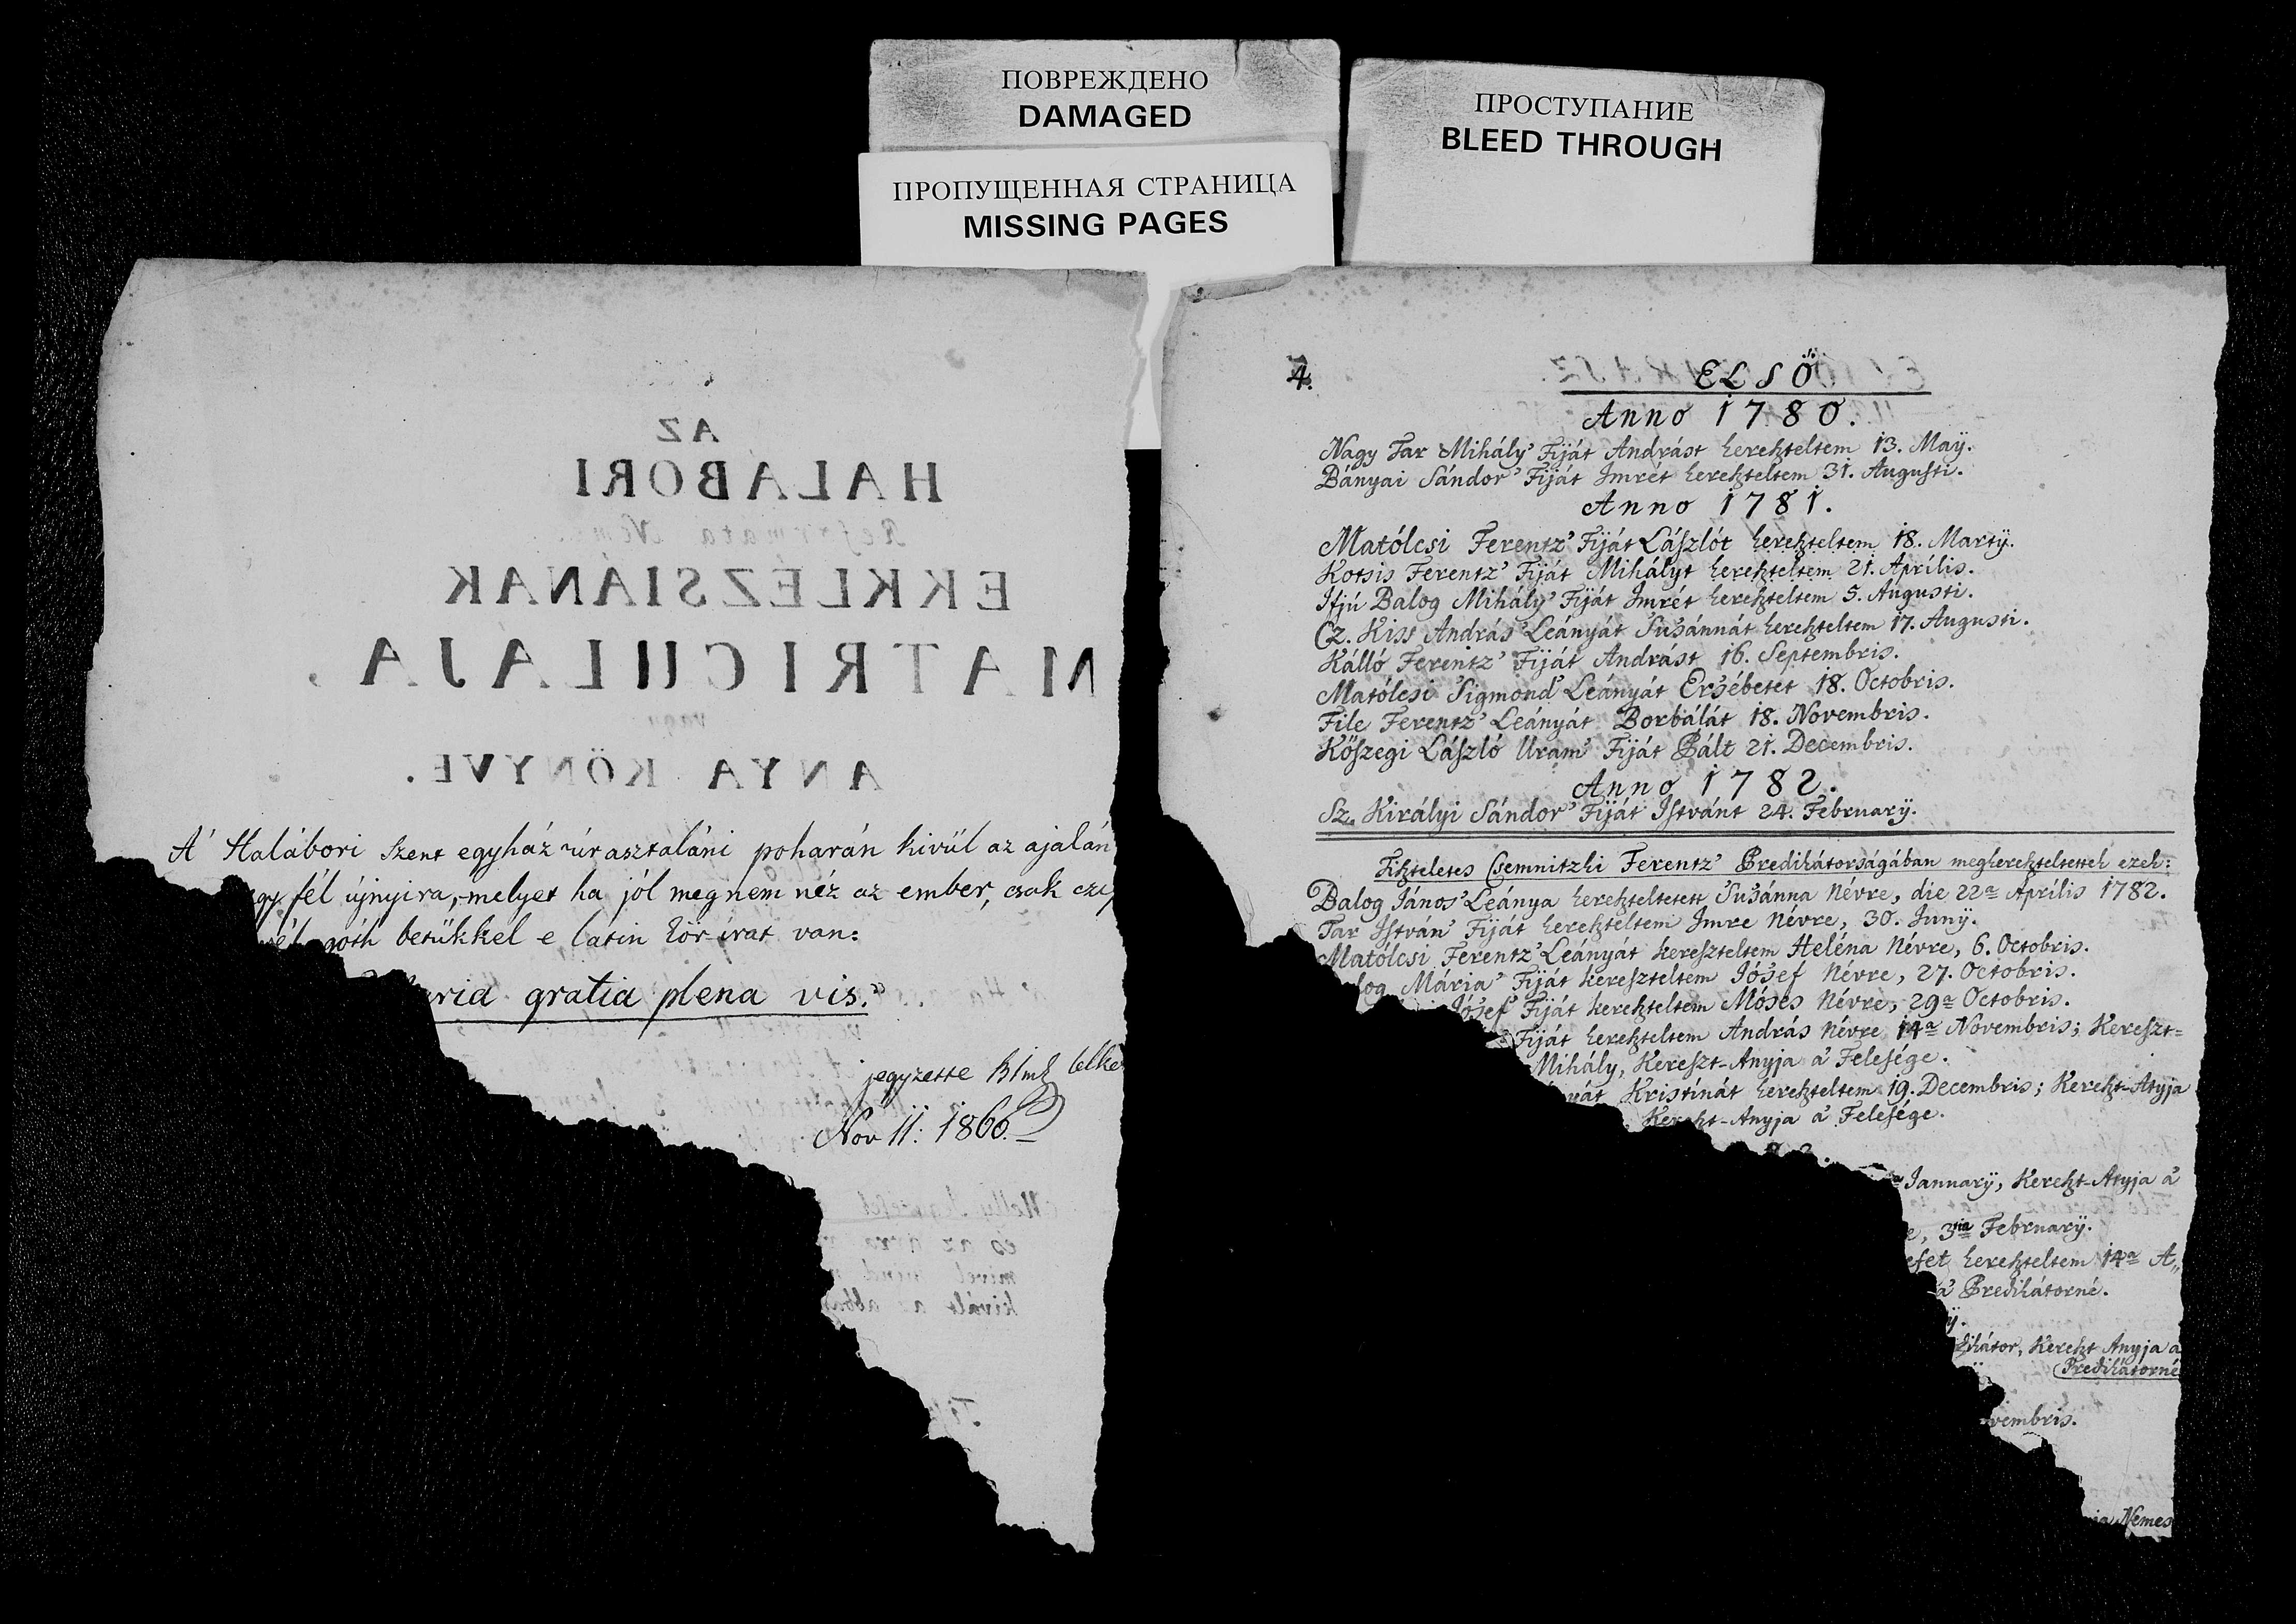 ПОВРЕЖДЕНО
DAMAGED
ПРОПУЩЕННАЯ СТРАНИЦА
MISSING PAGES
ПРОСТУПАНИЕ
BLEED THROUGH
AZ
HALÁBORI
Reformata
EKKLÉZSIÁNAK
MATRICULAJA.
vagy
ANYA KÖNYVE.
A' Halábori Szent egyház úrasztaláni poharán kivül az ajalán
fél újnyira, melyet ha jól meg nem néz az ember, csak
góth betükkel e latin kör-irat van:
gratia plena vis."
jegyzette
Nov 11: 1866.
4.
ELSŐ
Anno 1780.
Nagy Tar Mihály' Fiját Andrást kereszteltem 13. Maÿ.
Bányai Sándor' Fiját Imrét kereszteltem 31. Augusti.
Anno 1781.
Matólcsi Ferentz' Fiját Lászlót kereszteltem 18. Martÿ.
Kotsis Ferentz' Fiját Mihályt kereszteltem 21. Aprílis.
Ifjú Balog Mihály' Fiját Imrét kereszteltem 5. Augusti.
Cz. Kiss András' Leányát Susánnát kereszteltem 17. Augusti.
Kálló Ferentz' Fiját Andrást 16. Septembris.
Matólcsi Sigmond' Leányát Ersébetet 18. Octobris.
File Ferentz' Leányát Borbálát 18. Novembris.
Kőszegi László Uram' Fiját Pált 21. Decembris.
Anno 1782.
Sz. Királyi Sándor' Fiját Istvánt 24. Februarÿ.
Tiszteletes Csemnitzki Ferentz' Predikátorságában megkereszteltettek ezek:
Balog János' Leánya kereszteltetett Susánna Névre, die 22a Aprílis 1782.
Tar István' Fiját kereszteltem Imre Névre, 30. Junÿ.
Matólcsi Ferentz' Leányát kereszteltem Heléna Névre, 6. Octobris.
Mária' Fiját kereszteltem Jósef Névre, 27. Octobris.
Jósef' Fiját kereszteltem Móses Névre, 29a Octobris.
Fiját kereszteltem András Névre 14a Novembris; Kereszt=
Mihály, Kereszt-Anyja a' Felesége.
Kristínát kereszteltem 19. Decembris; Kereszt-Atyja
Kereszt-Anyja a' Felesége.
Januarÿ, Kereszt-Atyja a'
3tia Februarÿ.
kereszteltem 14a A„
a' Predikátorné.
Kereszt Anyja a
Predikátorné
Nemes